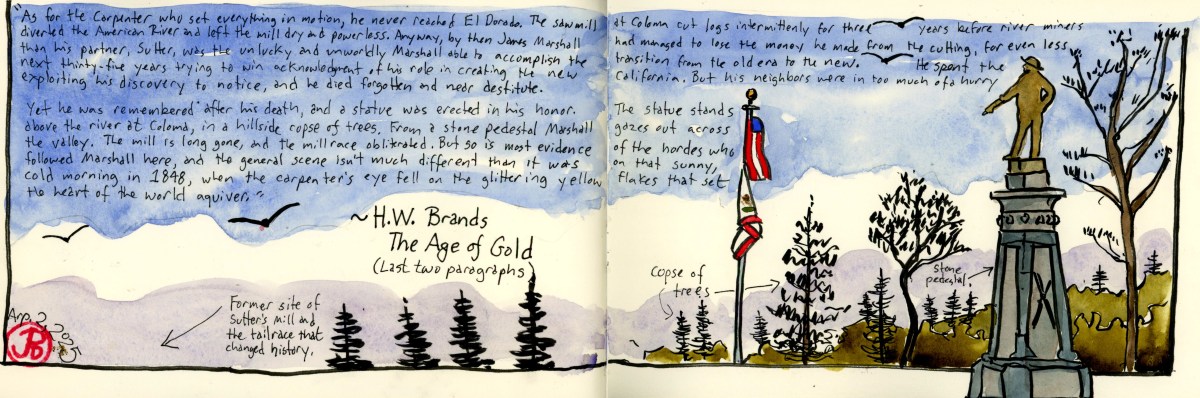 "As for the Carpenter who set everything in motion, he never reached El Dorado. The sawmill at Coloma cut logs intermittently for three years before river miners
diverted the American River and left the mill dry and powerless. Anyway, by then James Marshall had managed to lose the money he made from the cutting, for even less
than his partner, Sutter, was the unlucky and unworldly Marshall able to accomplish the transition from the old era to the new. He spent the
next thirty-five years trying to win acknowledgment of his role in creating the new California. But his neighbors were in too much of a hurry
exploiting his discovery to notice, and he died forgotten and near destitute.
Yet he was remembered after his death, and a statue was erected in his honor. The statue stands
above the river at Coloma, in a hillside copse of trees. From a stone pedestal Marshall gazes out across
the valley. The mill is long gone, and the millrace obliterated. But so is most evidence of the hordes who
followed Marshall here, and the general scene isn't much different than it was on that sunny,
cold morning in 1848, when the carpenter's eye fell on the glittering yellow flakes that set
the heart of the world aquiver."
~ H.W. Brands
The Age of Gold
(Last two paragraphs)
Former site of
Sutter's mill and
the tailrace that
changed history.
Copse of
trees
stone
pedestal
Apr. 2, 2025